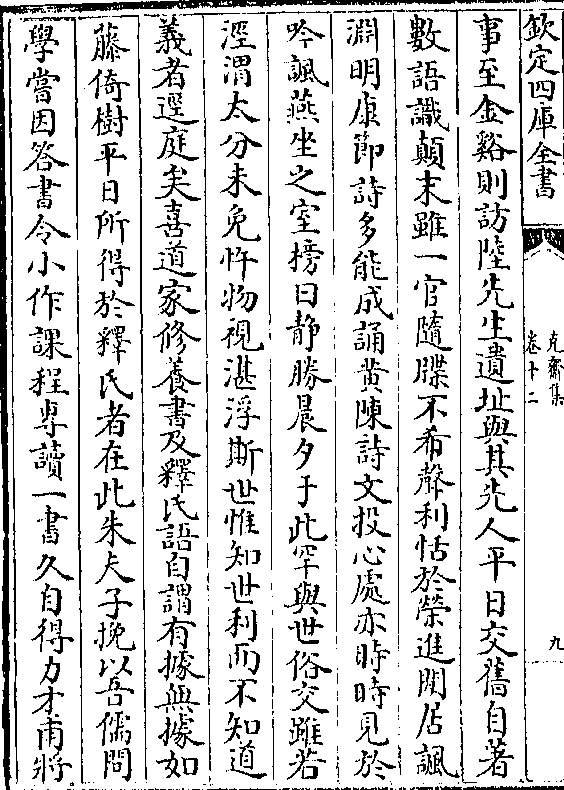 欽定四庫全書
克齋集
卷十二
九
事至金谿則訪陸先生遺址與其先人平日交舊自著
數語識顛末雖一官隨牒不希聲利恬於榮進閒居諷
淵明康節詩多能成誦黄陳詩文投心處亦時時見於
吟諷燕坐之室榜曰静勝晨夕于此罕與世俗交雖若
涇渭太分未免忤物視湛浮斯世惟知世利而不知道
義者逕庭矣喜道家修養書及釋氏語自謂有據無據如
藤倚樹平日所得於釋氏者在此朱夫子挽以吾儒問
學嘗因答書令小作課程専讀一書久自得力才甫將